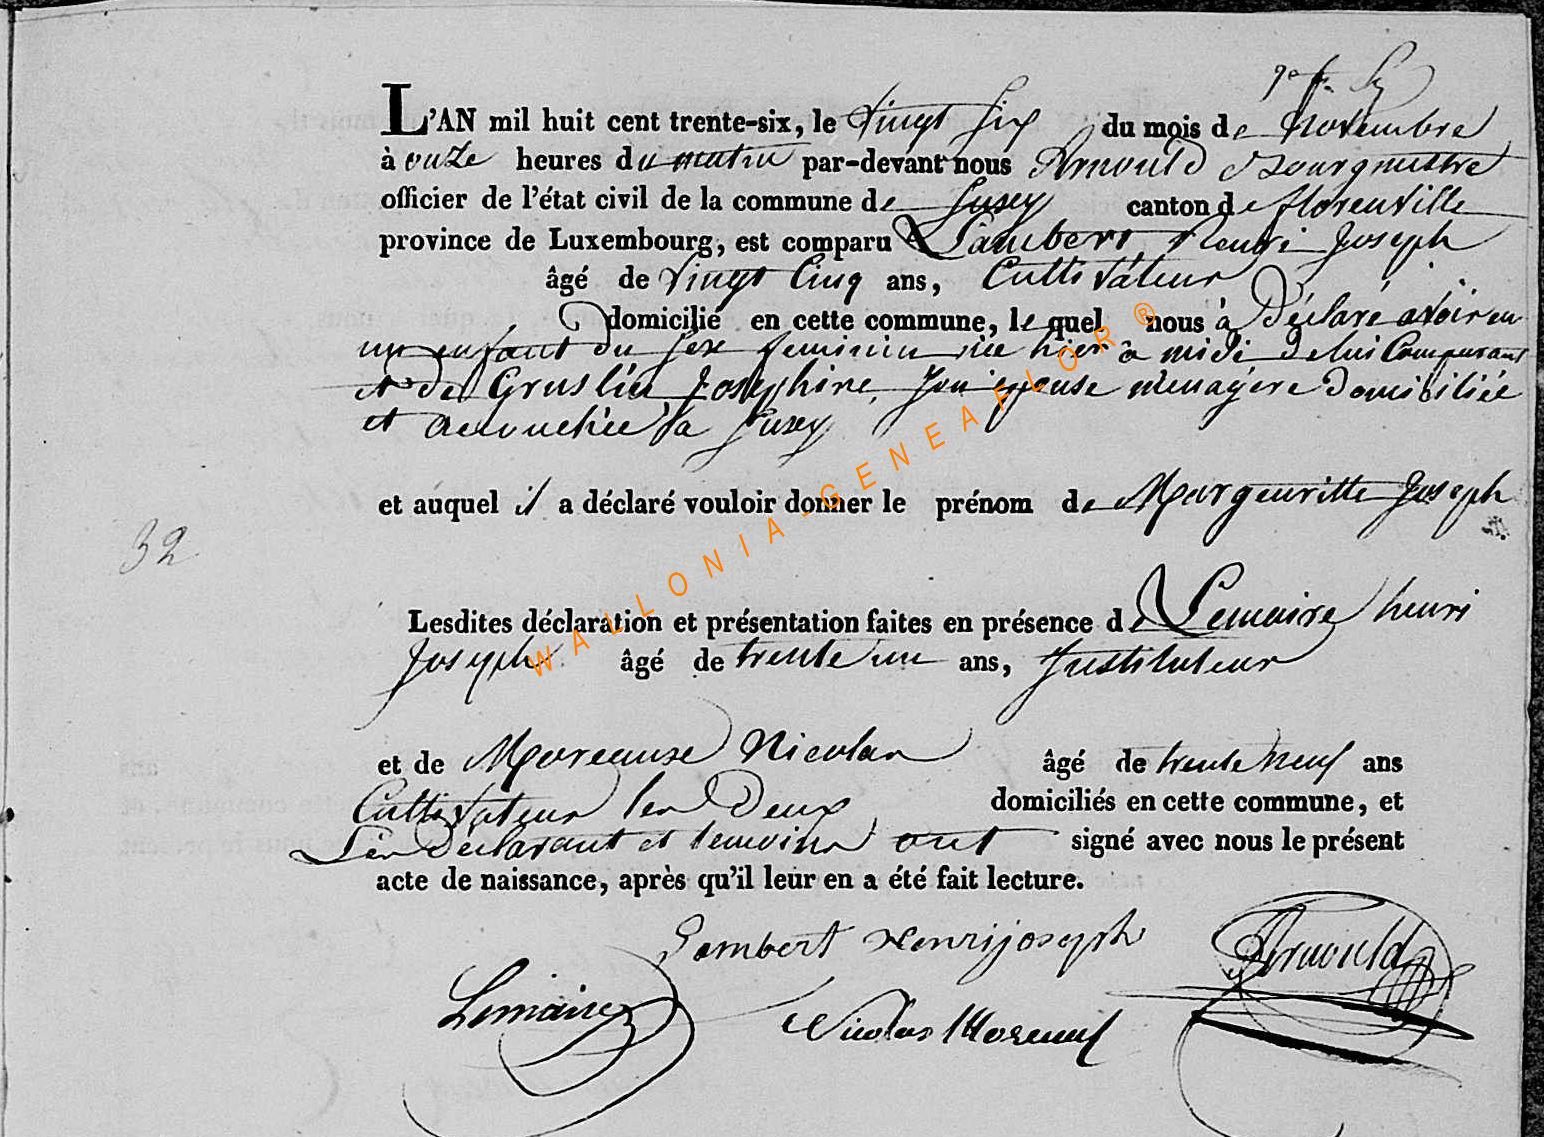 L'AN mil huit cent trente-six, le Vingt Six du mois de Novembre
à onze heures du matin par-devant nous Arnould Bourgmestre
officier de l'état civil de la commune de Jusey canton de florenville
province de Luxembourg, est comparu Lambert Henri Joseph
âgé de Vingt Cinq ans, Cultivateur
domicilié en cette commune, le quel nous à Déclaré avoir eu
un enfant du sexe feminin née hier à midi de lui Comparant
et de Gruslin Josephine, son epouse menagere domiciliée
et accouchée à Jusey
et auquel il a déclaré vouloir donner le prénom de Margueritte Joseph
32
Lesdites déclaration et présentation faites en présence de Lemaire henri
Joseph âgé de trente un ans, Instituteur
et de Moreause Nicolas âgé de trente neuf ans
Cultivateur les Deux domiciliés en cette commune, et
Les Declarant et temoins ont signé avec nous le présent
acte de naissance, après qu'il leur en a été fait lecture.
Lambert Henrijoseph
Arnould
Lemaire
Nicolas
WALLONIA-GENEAFLOR®